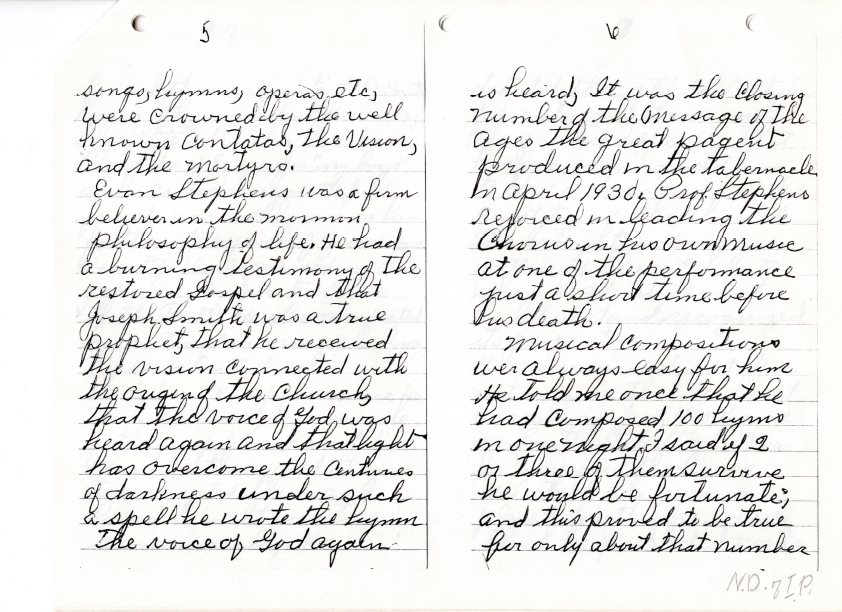 5
songs, hymns, operas etc,
were crowned by the well
known Contatas, the Vision,
and the Martyrs.
Evan Stephens was a firm
believer in the mormon
philosophy of life. He had
a burning testimony of the
restored Gospel and that
Joseph Smith was a true
prophet, that he received
the vision connected with
the origin of the Church,
that the voice of God was
heard again and that light
has overcome the Centuries
of darkness under such
a spell he wrote the hymn
The voice of God again
6
is heard, It was the Closing
number of the Message of the
Ages the great pagent
produced in the tabernacle
in April 1930. Prof. Stephens
rejoiced in leading the
Chorus in his own music
at one of the performance
just a short time before
his death.
Musical Compositions
wer always easy for him
He told me once that he
had Composed 100 hyms
in one night, I said if 2
or three of them survive
he would be fortunate;
and this proved to be true
for only about that number
N.D. of I.P.